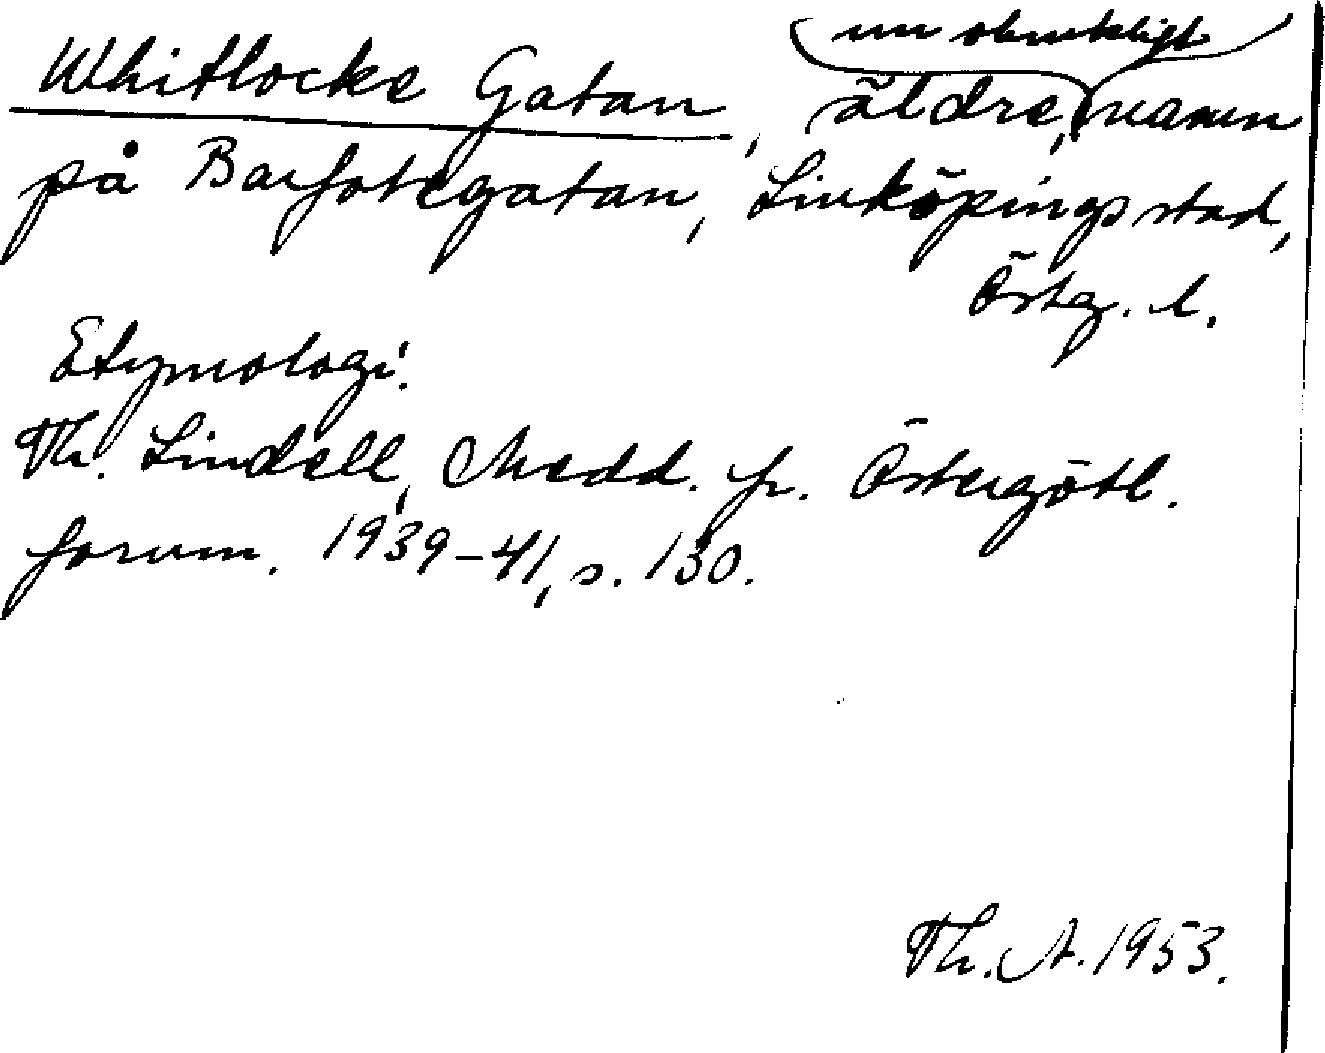 Whitlocks Gatan, äldre, nu obrukligt namn
på Barfotegatan, Linköpings stad,
Östg. l.
Etymologi:
Th. Lindell, Medd. fr. Östergötl.
fornm. 1939-41, s. 130.
Th. A. 1953.